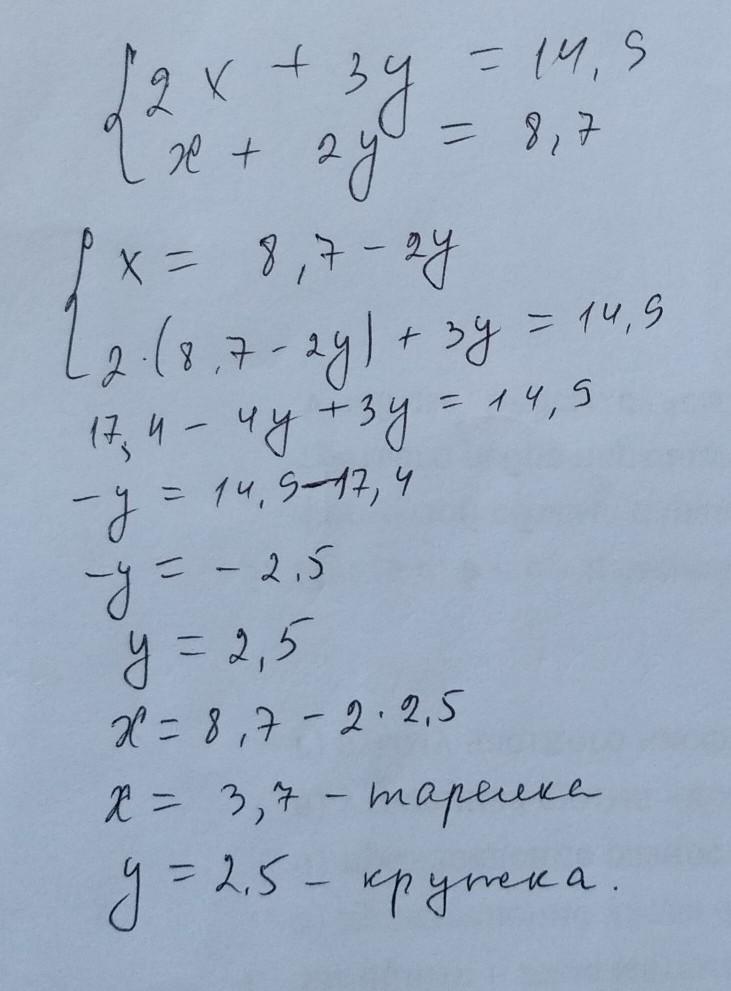 2x + 3y = 14,9
x + 2y = 8,7
x = 8,7 - 2y
2·(8,7 - 2y) + 3y = 14,9
17,4 - 4y + 3y = 14,9
-y = 14,9 - 17,4
-y = - 2,5
y = 2,5
x = 8,7 - 2·2,5
x = 3,7 - тарелка
y = 2,5 - кружка.